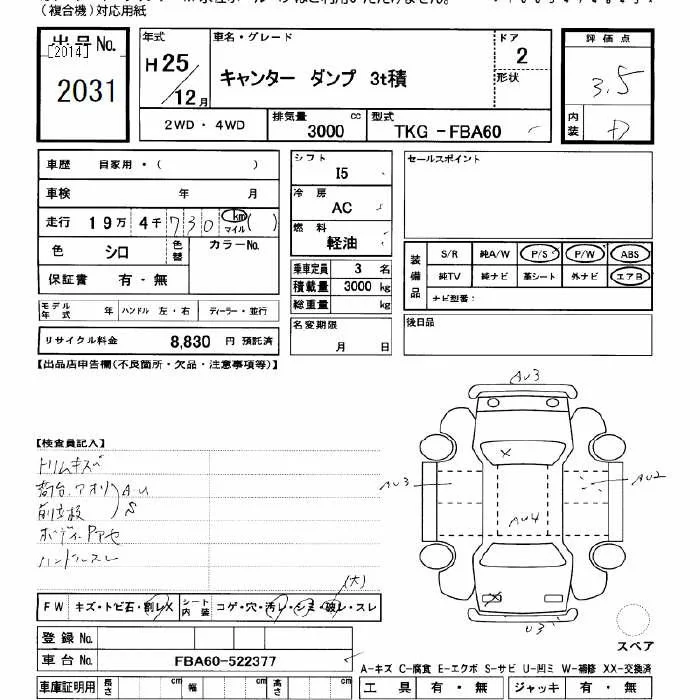 (複合機)対応用紙
出品No.
[2014]
2031
年式
H25/12月
車名・グレード
キャンター ダンプ 3t積
ドア
2
形状
評価点
3.5
内装
D
2WD・4WD
排気量
3000 cc
型式
TKG-FBA60
車歴 自家用・( )
車検 年 月
走行 19万 4千 730 km マイル ( )
色 シロ
色替
カラーNo.
保証書 有・無
シフト
I5
冷房
AC
燃料
軽油
乗車定員 3 名
積載量 3000 kg
総重量 kg
セールスポイント
装備品
S/R 純A/W P/S P/W ABS
純TV 純ナビ 革シート 外ナビ エアB
ナビ型番:
モデル年式 年 ハンドル 左・右 ディーラー・並行
リサイクル料金 8,830 円 預託済
名変期限
月 日
後日品
【出品店申告欄(不良箇所・欠品・注意事項等)】
【検査員記入】
トリムキズ
荷台アオリ AU
S
ボディーPアセ
ハンドルスレ
AU3
AU3
AU2
AU4
U3
X
X
(大)
FW キズ・トビ石・割レX
シート内装 コゲ・穴・汚レ・シミ・破レ・スレ
登録No.
車台No. FBA60-522377
車庫証明用 長さ cm 幅 cm 高さ cm
スペア
A-キズ C-腐食 E-エクボ S-サビ U-凹ミ W-補修 XX-交換済
工具 有・無 ジャッキ 有・無